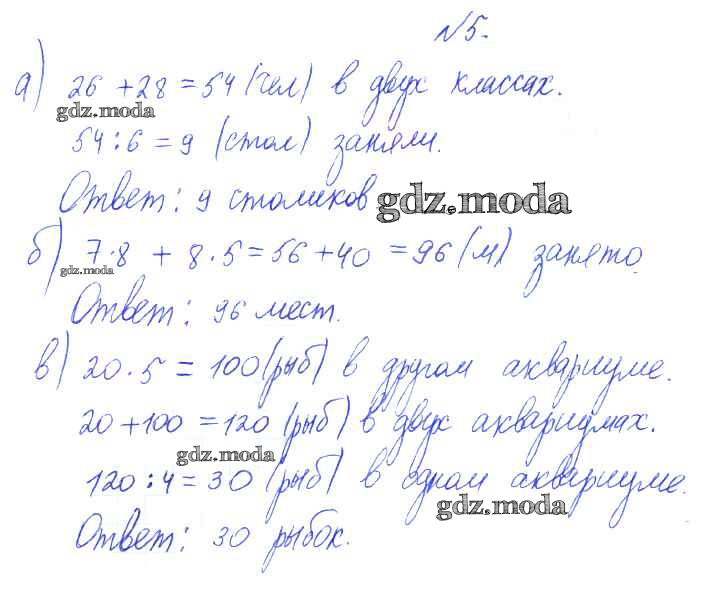 №5.
а) 26 + 28 = 54 (чел) в двух классах.
gdz.moda
54 : 6 = 9 (стол) заняли.
Ответ: 9 столиков gdz.moda
б) 7·8 + 8·5 = 56 + 40 = 96 (м) занято.
gdz.moda
Ответ: 96 мест.
в) 20·5 = 100 (рыб) в другом аквариуме.
20 + 100 = 120 (рыб) в двух аквариумах.
gdz.moda
120 : 4 = 30 (рыб) в одном аквариуме.
gdz.moda
Ответ: 30 рыбок.